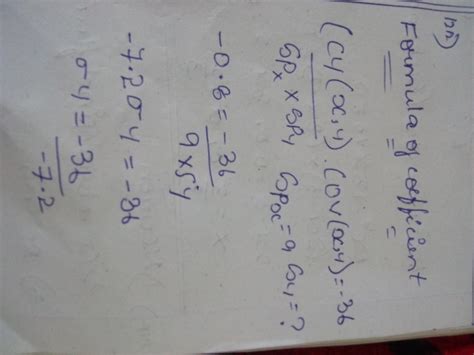 Formula of coefficient
(Cy(x,y) . COV(x,y)=-36
6px x Spy 6px=9 6y=?
-0.8=-36
9xσy
-7.2σy=-36
σy=-36
-7.2